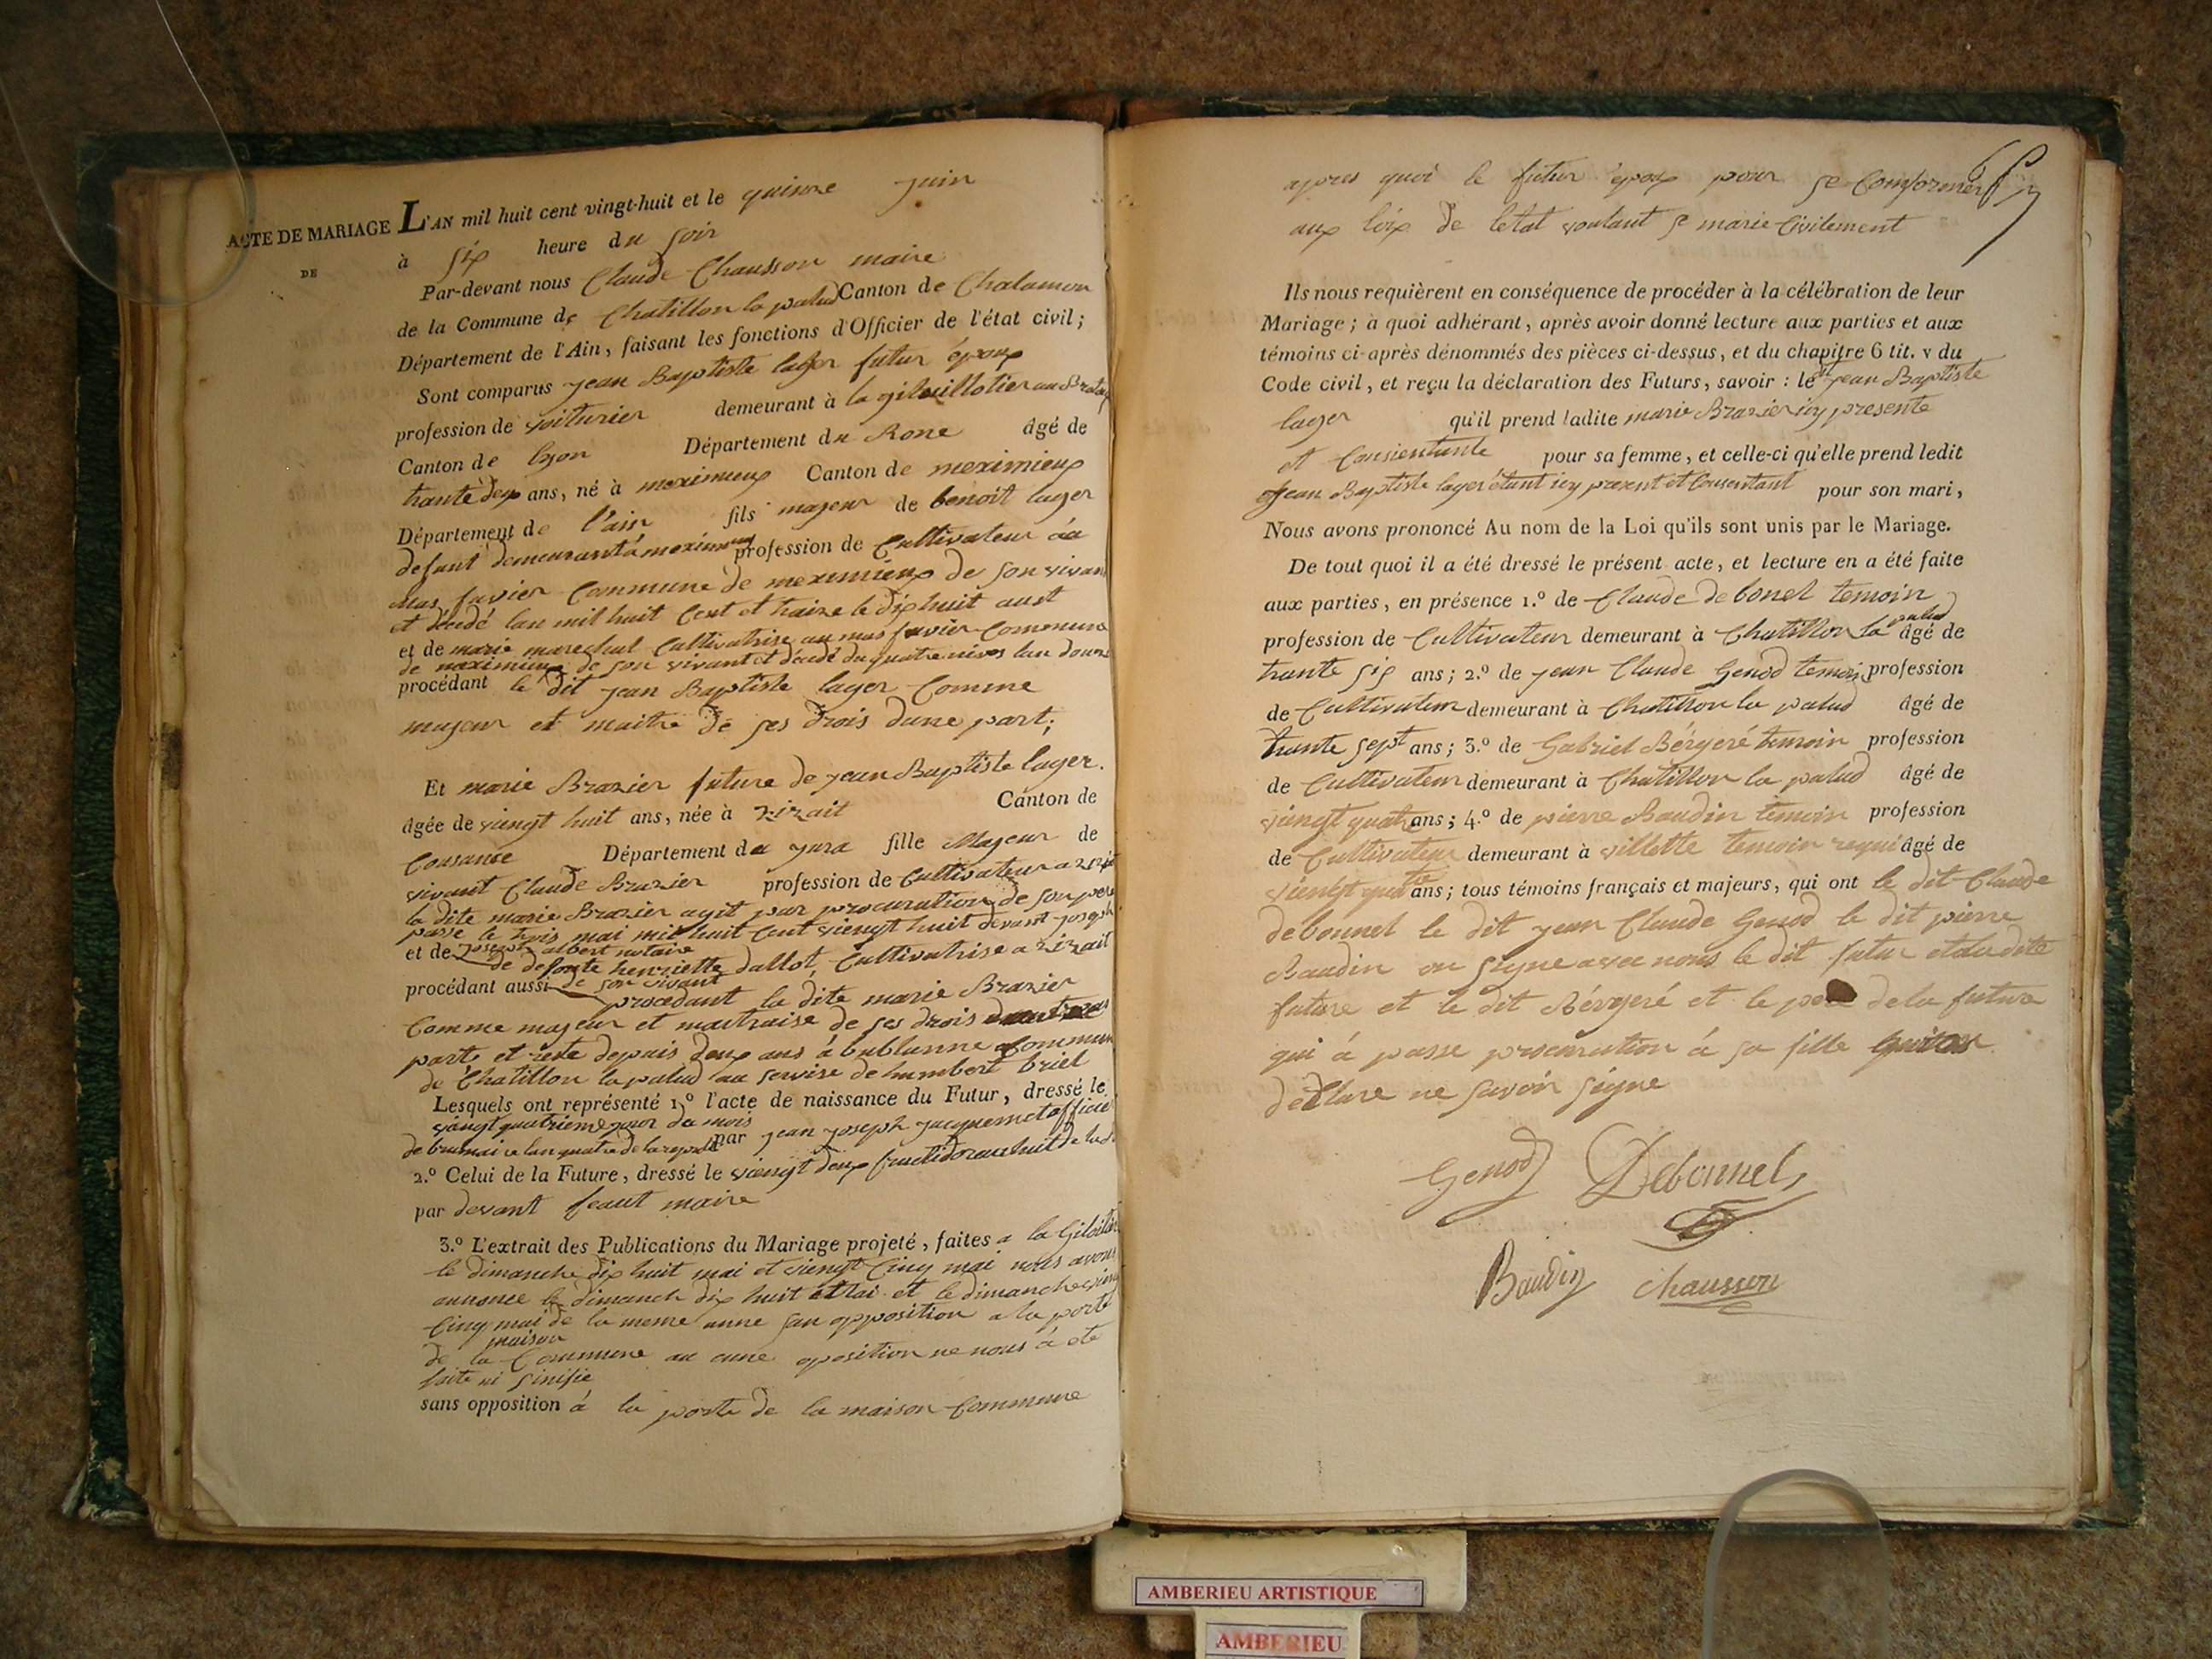 ACTE DE MARIAGE
DE
L'AN mil huit cent vingt-huit et le quinze juin
à six heure du soir
Par-devant nous Claude Chausson maire
de la Commune de Chatillon la palud Canton de Chalamon
Département de l'Ain, faisant les fonctions d'Officier de l'état civil;
Sont comparus jean Baptiste lager futur époux
profession de voiturier demeurant à la
Canton de lyon Département du Rone âgé de
trante deux ans, né à meximieux Canton de meximieux
Département de l'ain fils majeur de benoit lager
defunt demeurant à meximieux profession de Cultivateur au
mas favier Commune de meximieux de son vivant
et décedé lan mil huit Cent et traize le dix huit aust
et de marie marechal Cultivatrise au mas favier Commune
de meximieux de son vivant et décédé du quatre nivos lan douze
procédant le dit jean Baptiste lager Comme
majeur et maitre de ses drois dune part;
Et marie Brazier future de jean Baptiste lager.
âgée de viengt huit ans, née à zizait Canton de
Cousance Département du jura fille Majeur de
vivant Claude Brazier profession de Cultivateur a
la dite marie Brazier agit par procuration de son pere
passe le trois mai mil huit Cent viengt huit devant joseph
et de joseph albert notaire
de defonte henriette dallot, Cultivatrise a zizait
procédant aussi de son vivant
procedant la dite marie Brazier
Comme majeur et maitraise de ses drois
parte et reste depuis deux ans à bublanne Commune
de Chatillon la palud au servise de humbert briel
Lesquels ont représenté 1.º l'acte de naissance du Futur, dressé le
viengt quatrieme jour du mois
de brumaire lan quatre de la par jean joseph jacquemet officier
2.º Celui de la Future, dressé le viengt deux fructidor an huit de la
par devant feaut maire
3.º L'extrait des Publications du Mariage projeté, faites a la
le dimanche dix huit mai et viengt Cinq mai nous avons
annonce le dimanch dix huit Mai et le dimanche
Cinq mai de la meme anne san opposition a la porte
maison
de la Commune au cune oposition ne nous à ete
faite ni sinifie
sans opposition à la porte de la maison Commune
apres quoi le futur epoux pour se Conformer
aux loix de letat voulant se marie Civilement
Ils nous requièrent en conséquence de procéder à la célébration de leur
Mariage; à quoi adhérant, après avoir donné lecture aux parties et aux
témoins ci-après dénommés des pièces ci-dessus, et du chapitre 6 tit. v du
Code civil, et reçu la déclaration des Futurs, savoir: le dit jean Baptiste
lager qu'il prend ladite marie Brazier icy presente
et Consientante pour sa femme, et celle-ci qu'elle prend ledit
jean Baptiste lager étant icy present et Consentant pour son mari,
Nous avons prononcé Au nom de la Loi qu'ils sont unis par le Mariage.
De tout quoi il a été dressé le présent acte, et lecture en a été faite
aux parties, en présence 1.º de Claude de bonel temoin
profession de Cultivateur demeurant à Chatillon la palud âgé de
trante six ans; 2.º de jean Claude Genod temoin profession
de Cultivateur demeurant à Chatillon la palud âgé de
trante sept ans; 3.º de Gabriel Bérgeré temoin profession
de Cultivateur demeurant à Chatillon la palud âgé de
viengt quatre ans; 4.º de pierre Baudin temoin profession
de Cultivateur demeurant à villette temoin requi âgé de
viengt quatre ans; tous témoins français et majeurs, qui ont le dit Claude
debonnel le dit jean Claude Genod le dit pierre
Baudin on signe avec nous le dit futur et la dite
future et le dit Bérgeré et le pere de la future
qui à passe procuration à sa fille
déClare ne savoir signe
Genod Debonnel
Baudin Chausson
AMBERIEU ARTISTIQUE
AMBERIEU